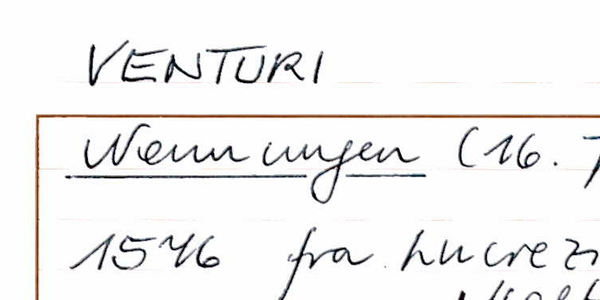 VENTURI
Nennungen (16.
1546 fra Lucrezi